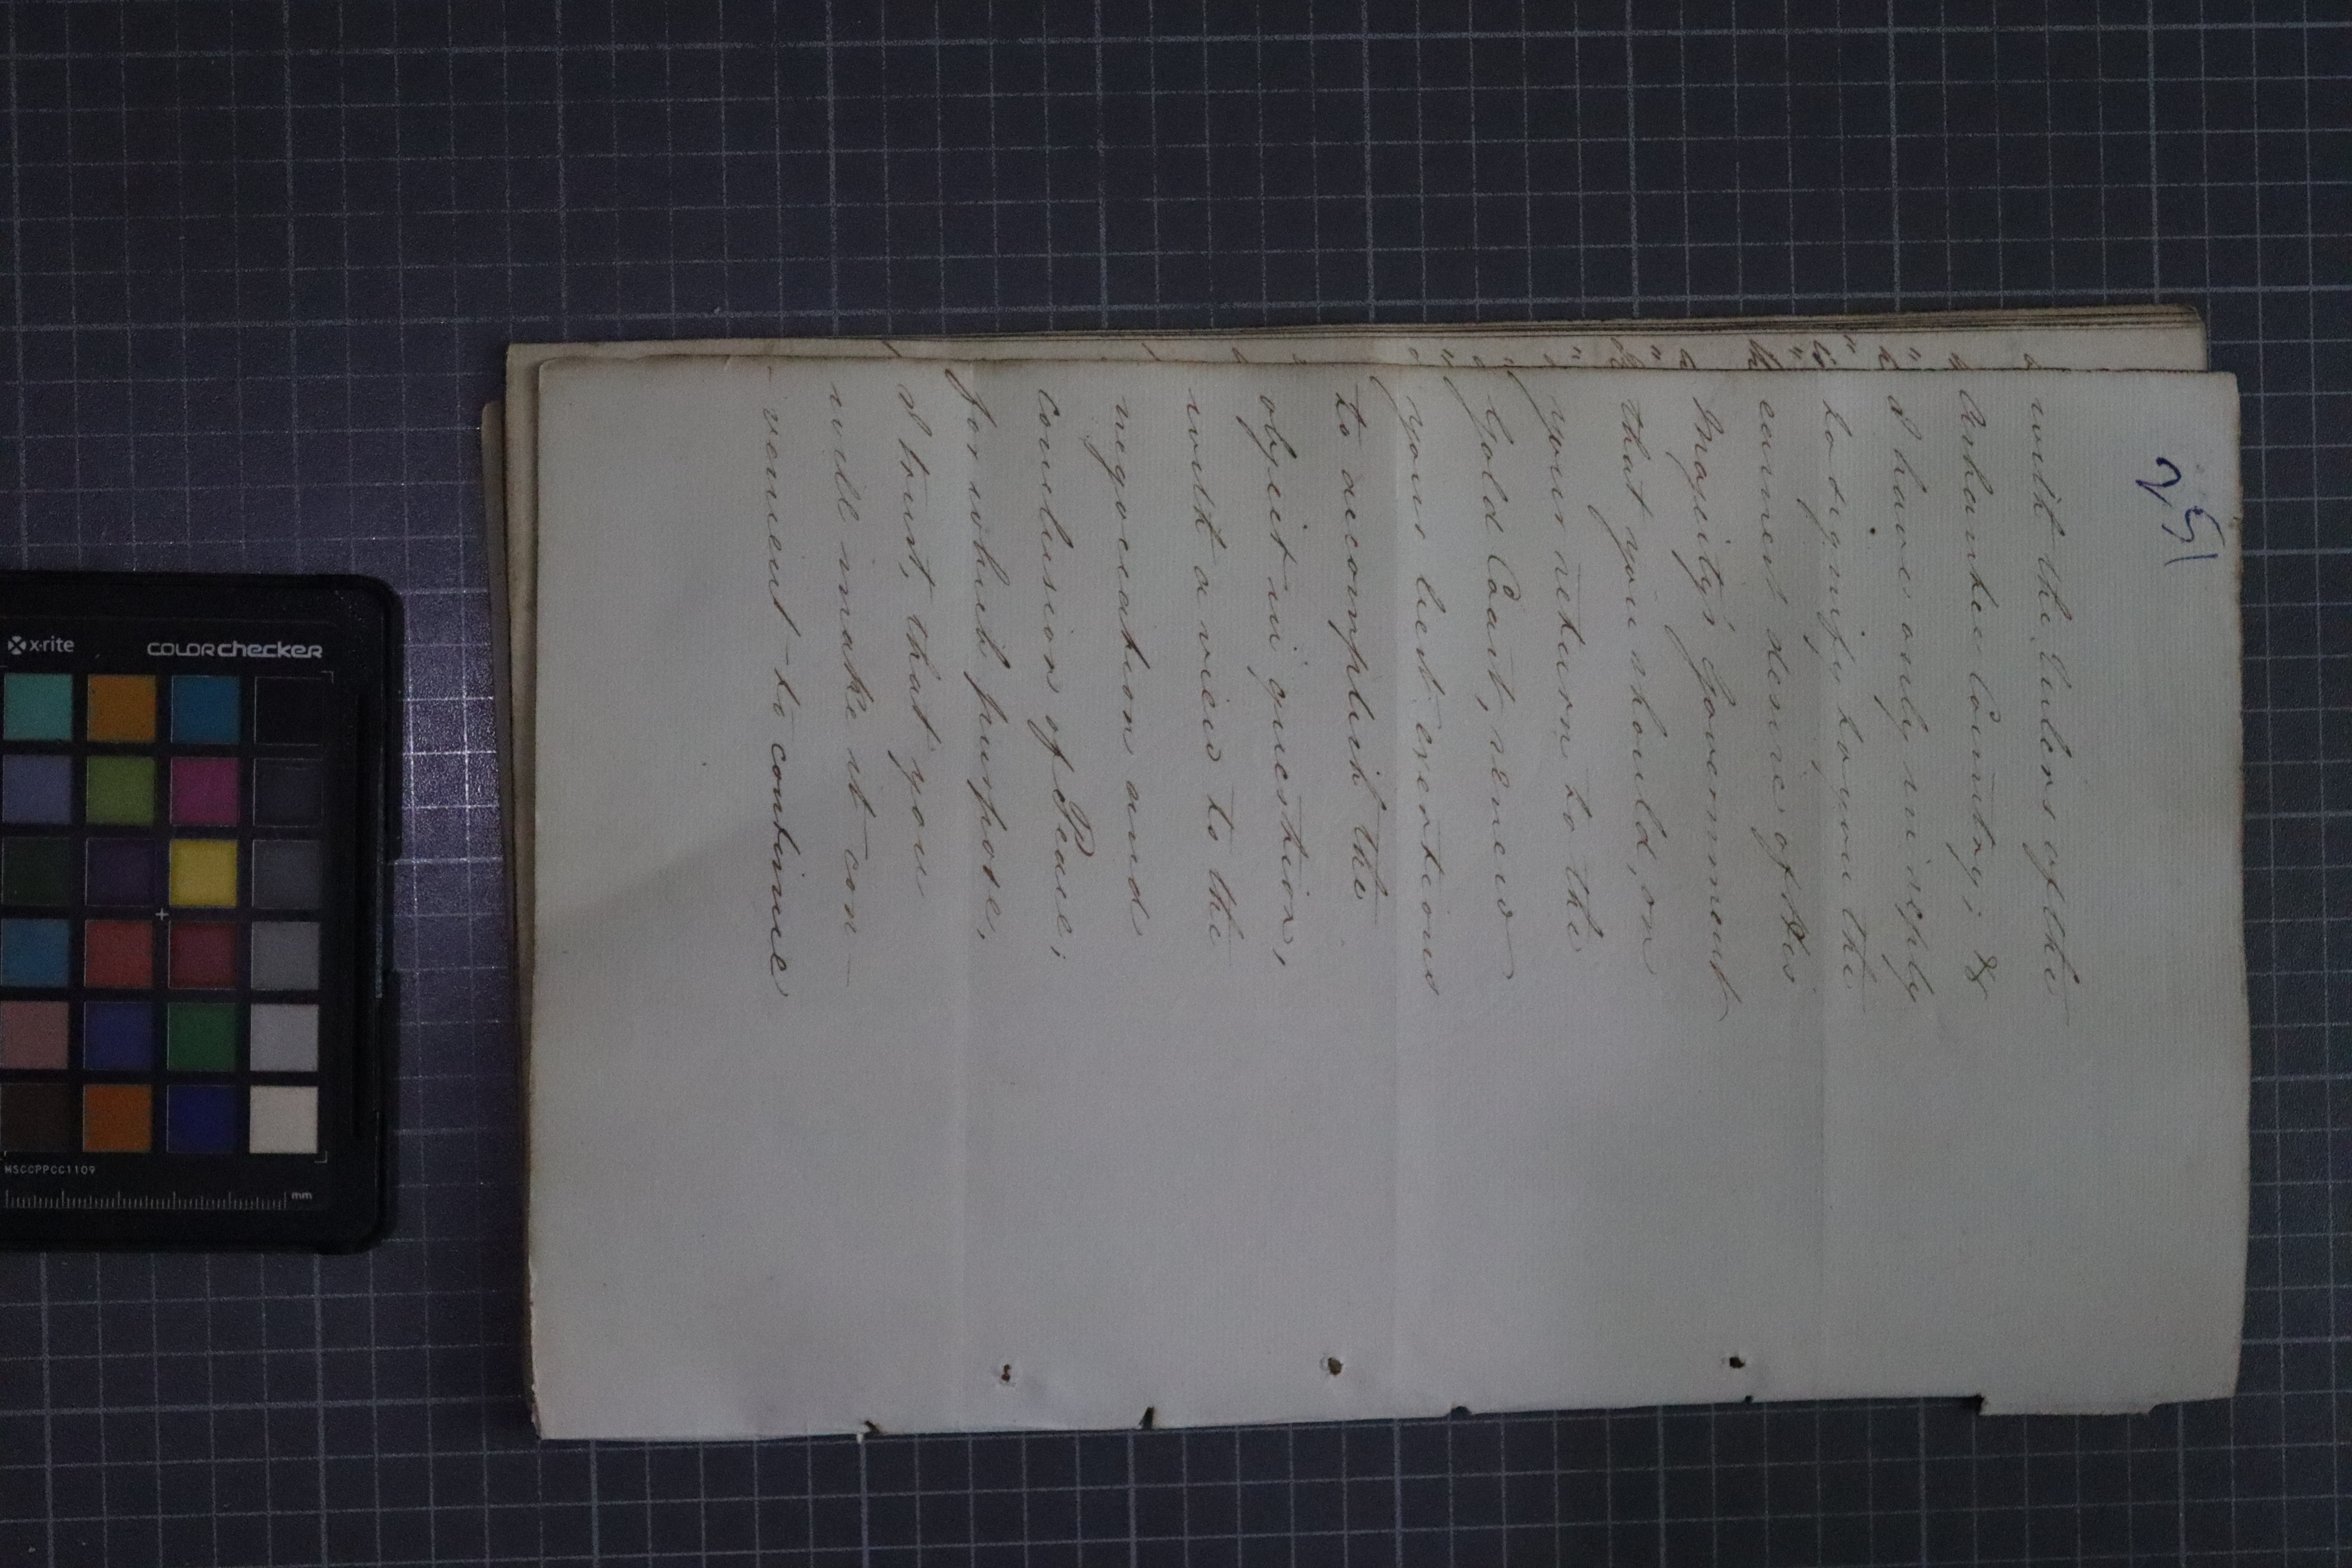 25
with the Rulers of the
Ashantee Country; &
I have only in reply
to signify to you the
earnest desire of His
Majesty's Government
that you should, on
your return to the
Gold Coast, renew
your best exertions
to accomplish the
object in question,
with a view to the
negociation and
conclusion of Peace;
for which purpose,
I trust, that you
will make it con-
-venient to continue
x-rite
COLORchecker
MSCCPPCC1109
mm